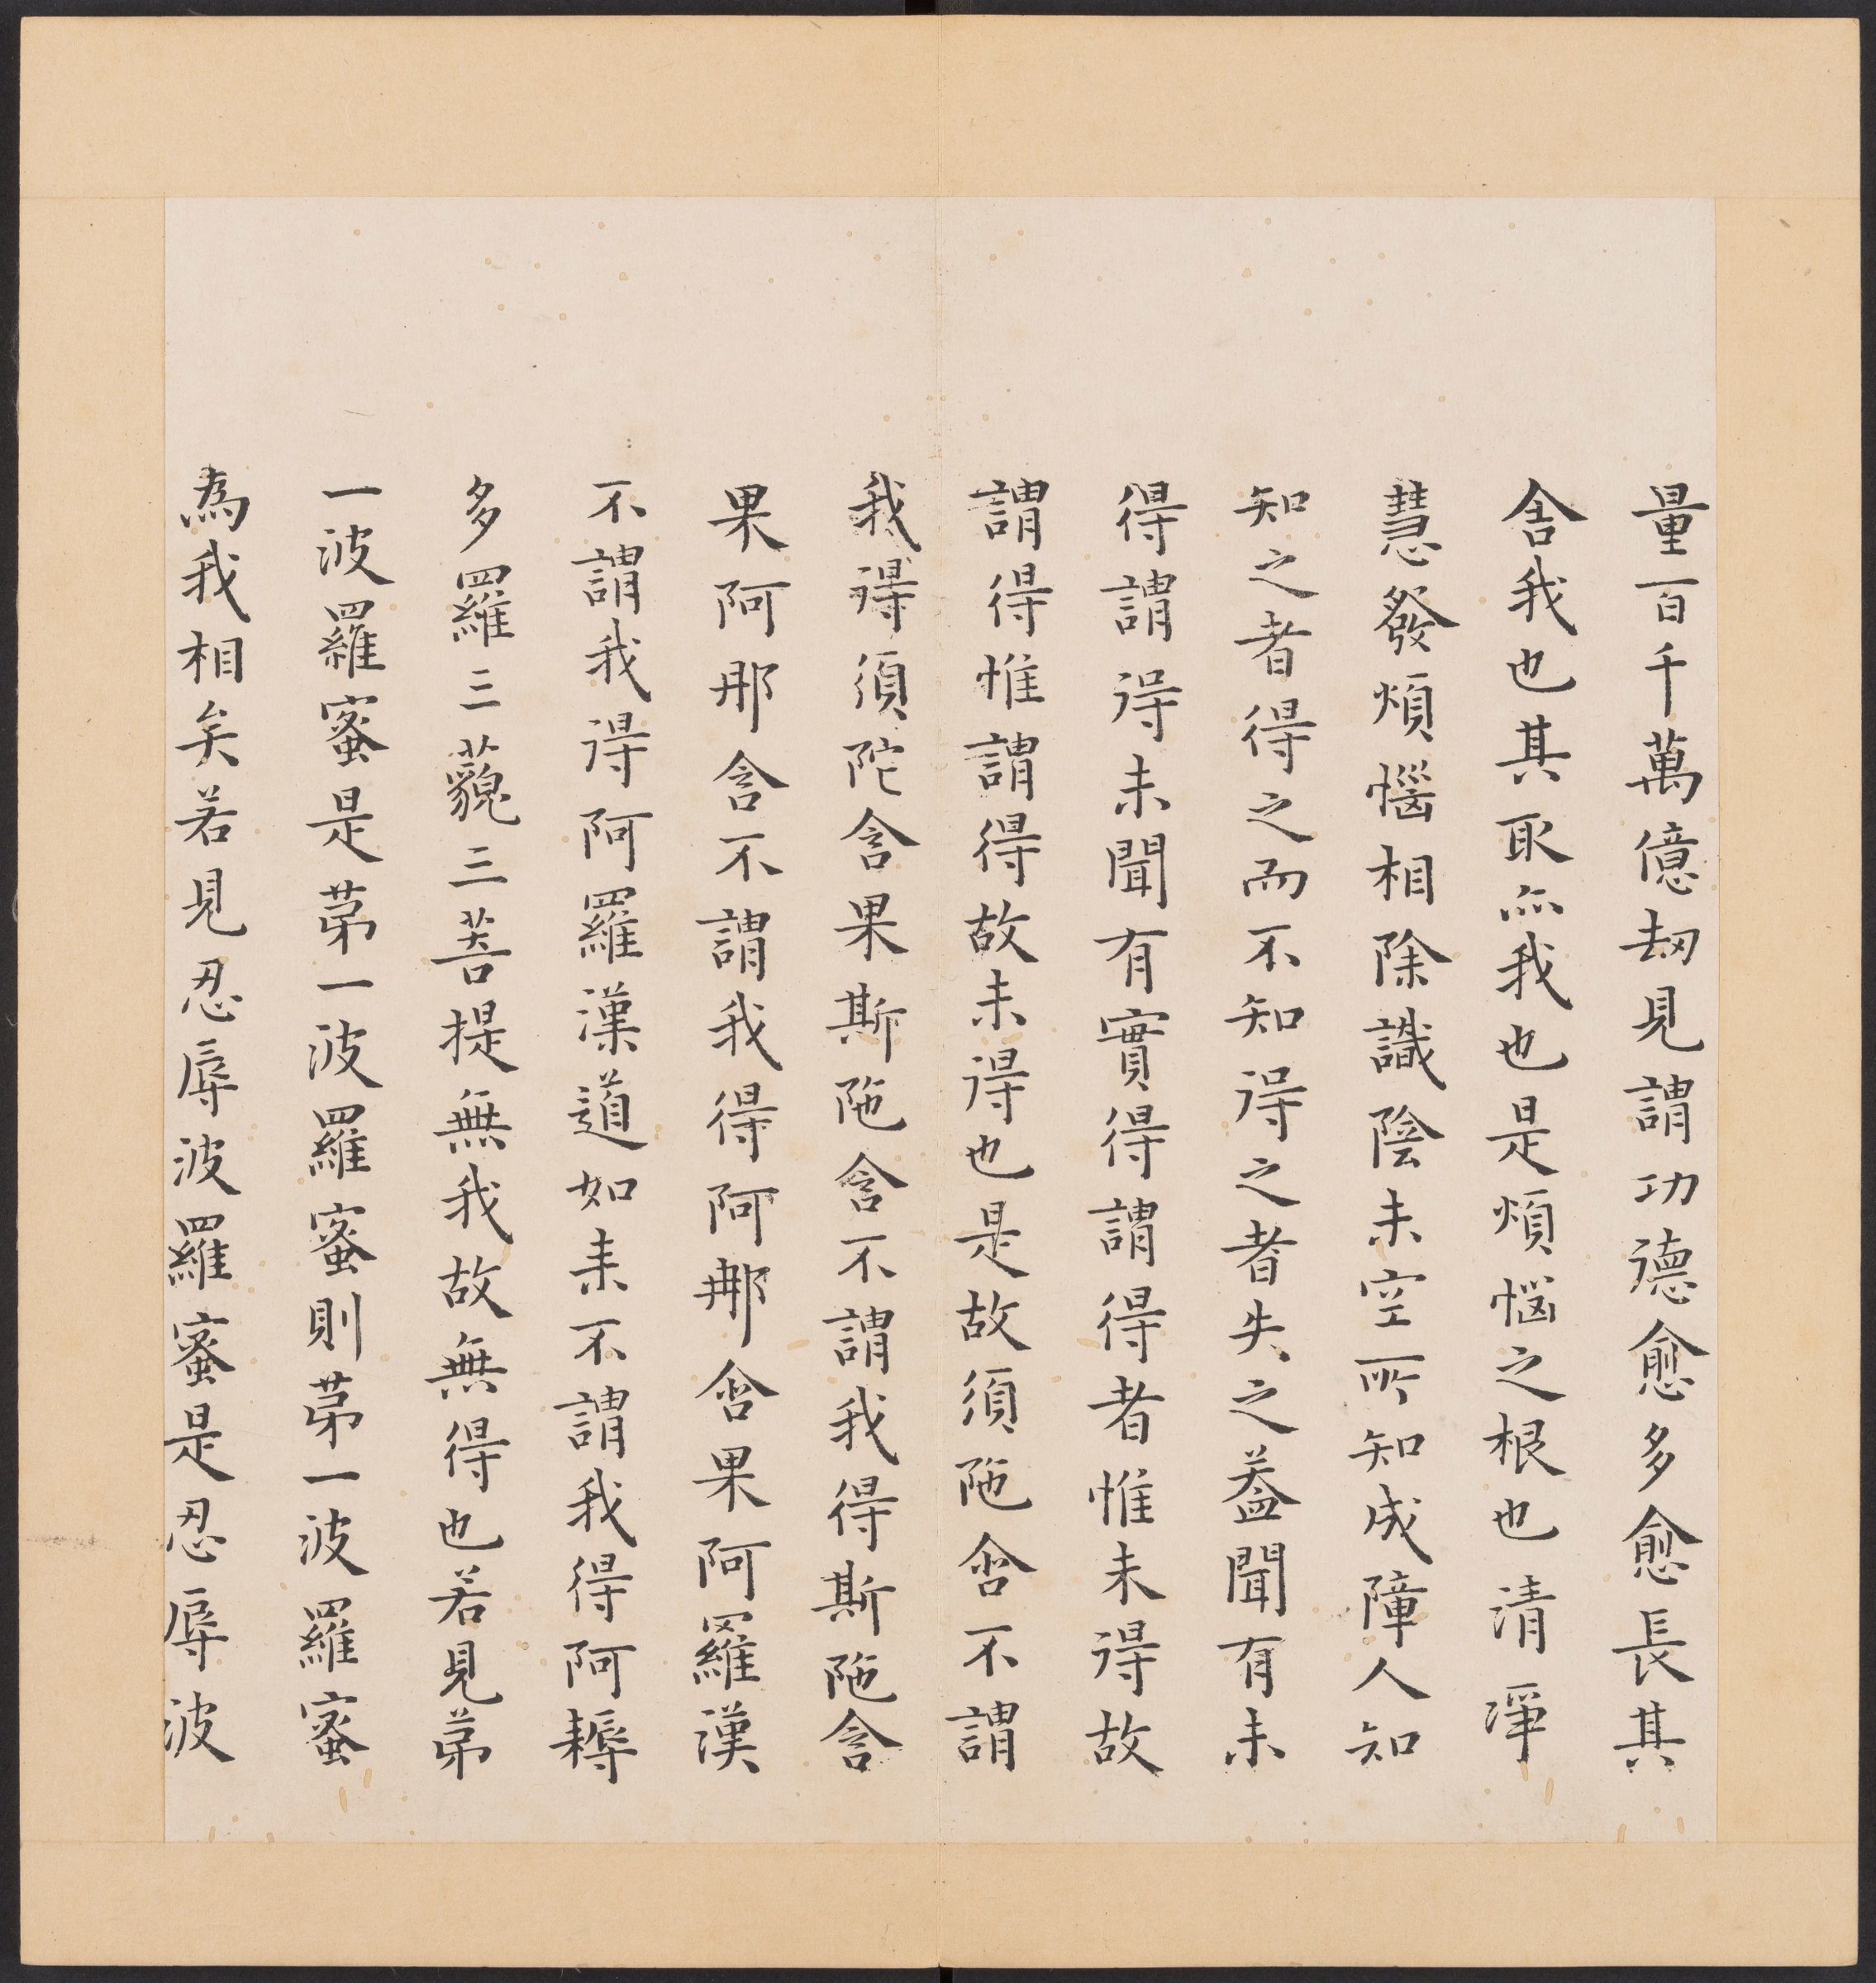 量百千萬億劫見謂功德愈多愈長其
舍我也其取無我也是煩惱之根也清淨
慧發煩惱相除識陰未空所知成障人知
知之者得之而不知得之者失之蓋聞有未
得謂得未聞有實得謂得者惟未得故
謂得惟謂得故未得也是故須陁含不謂
我得須陀含果斯陁含不謂我得斯陁含
果阿那含不謂我得阿那含果阿羅漢
不謂我得阿羅漢道如来不謂我得阿耨
多羅三藐三菩提無我故無得也若見苐
一波羅蜜是苐一波羅蜜則苐一波羅蜜
為我相矣若見忍辱波羅蜜是忍辱波